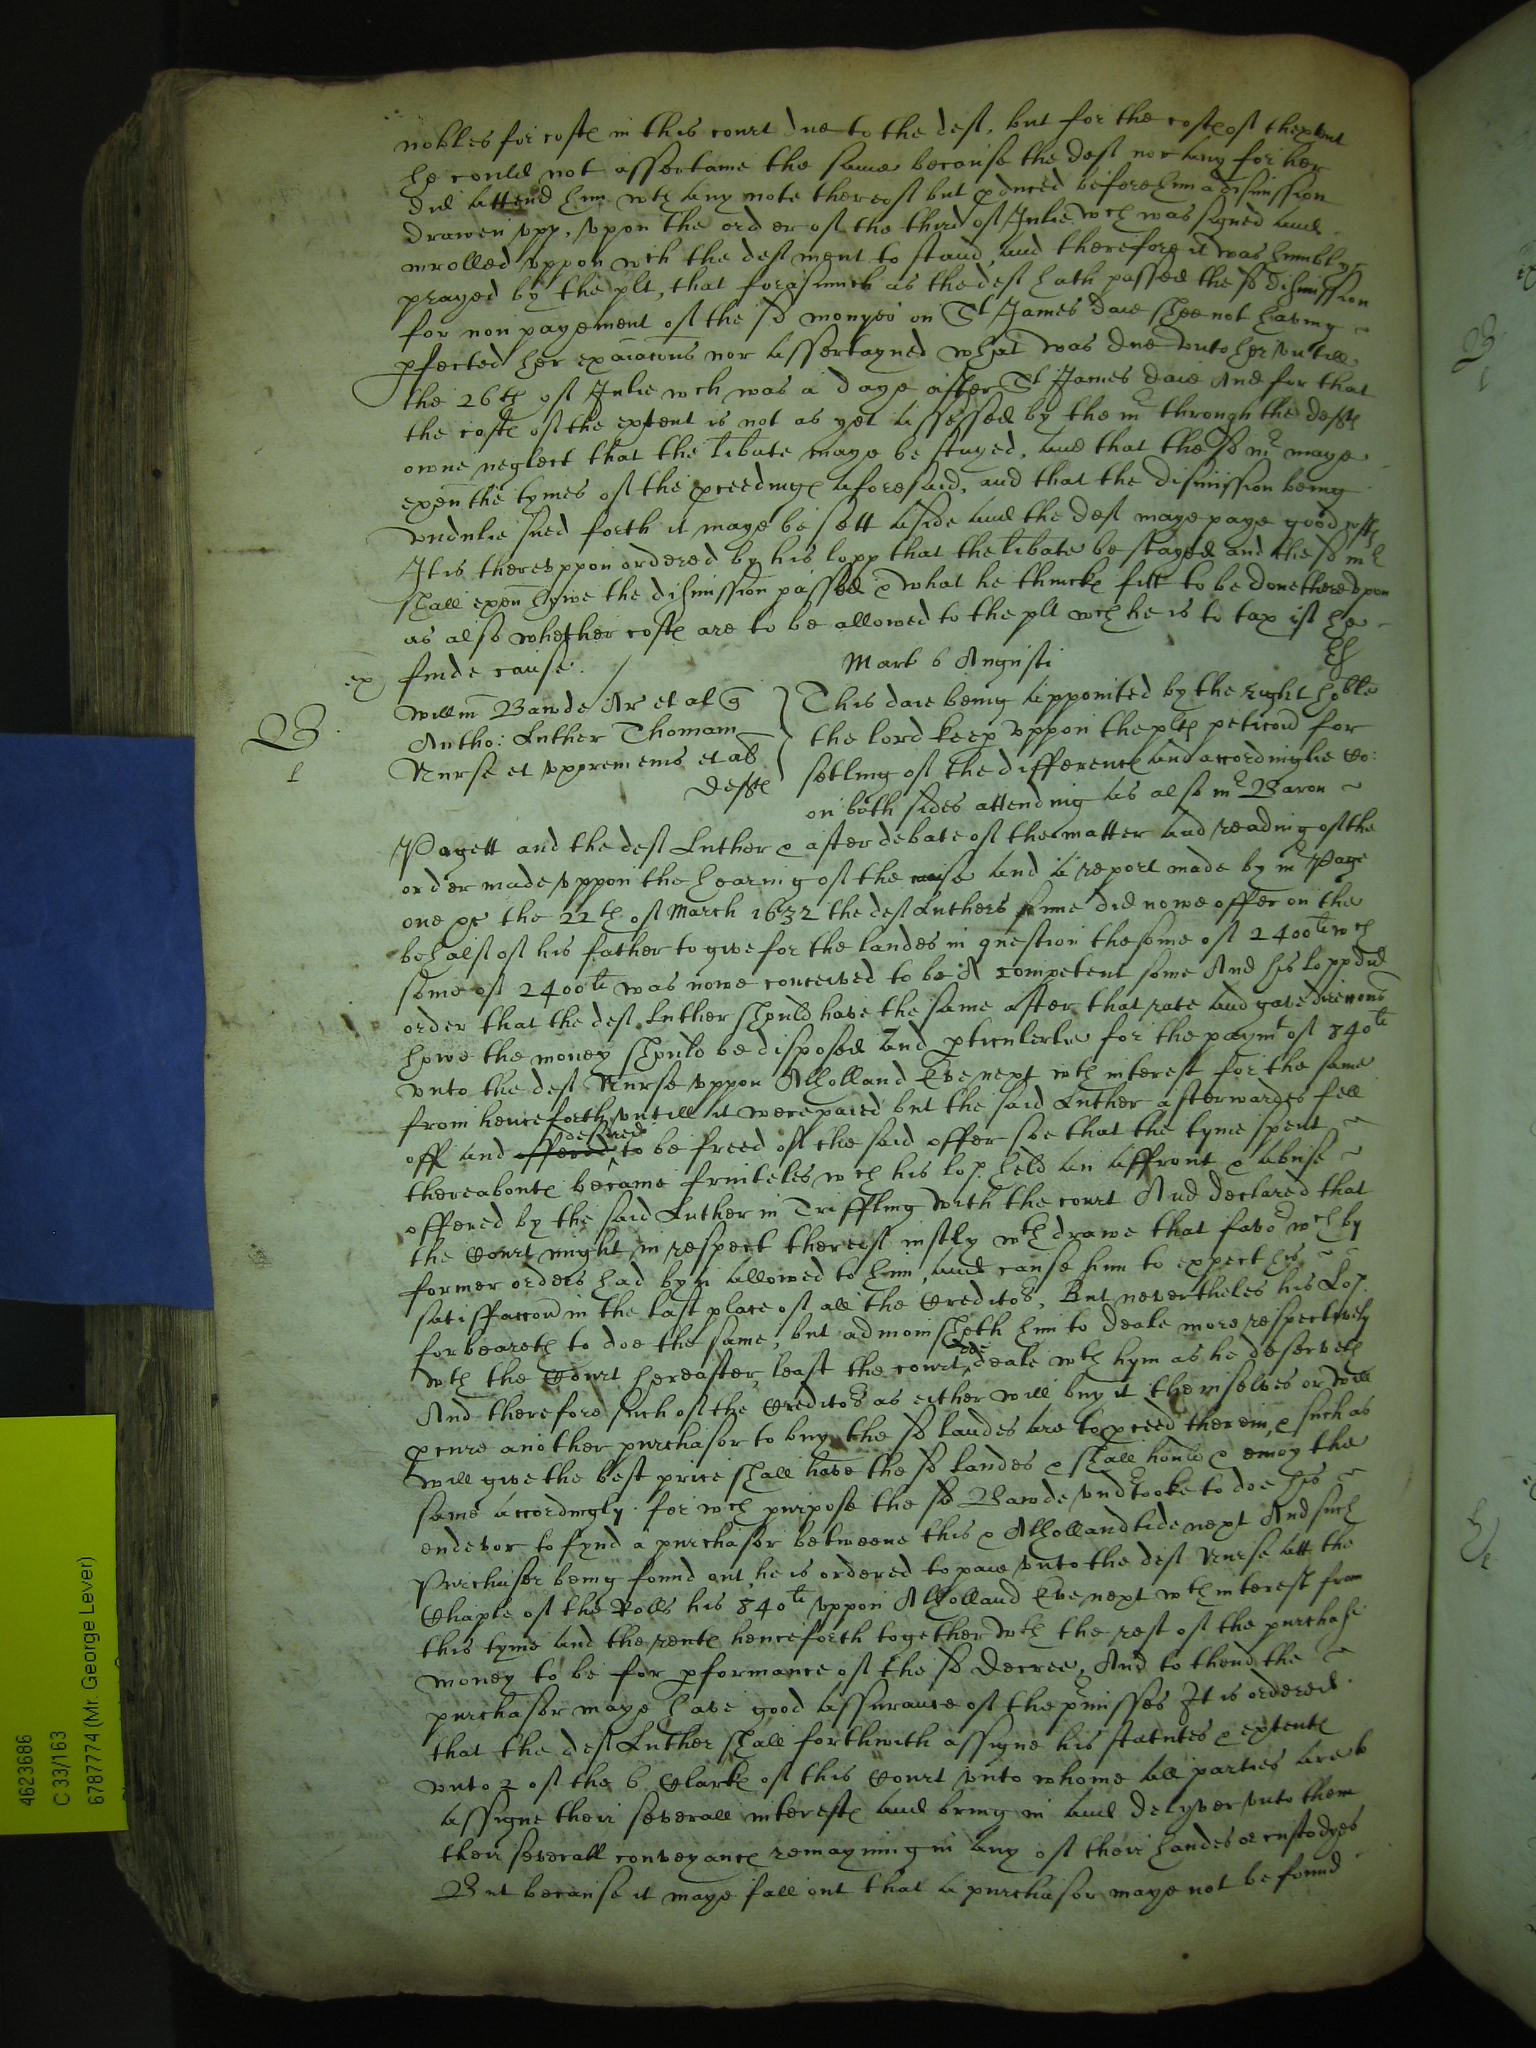 nobles for costℯ in this court due to the deft, but for the costℯ of thextent
he could not assertaine the same because the deft nor any for her
did attend him wth any note thereof but pduced before him a dismission
drawen vpp, vpon the order of the third of Julie wch was signed and
inrolled vppon wch the deft ment to stand, and therefore it was humbly
prayed by the plt, that forasmuch as the deft hath passed the sd dismission
for non payement of the sd monyes on St James daie shee not having
pfected her exaiacions nor assertayned what was due vnto her vntill
the 26th of Julie wch was a daye after St James daie And for that
the costℯ of the extent is not as yet assessed by the mr through the deftℯ
owne neglect that the libate maye be stayed, and that the sd mr maye
exen the tymes of the pceedingℯ aforesaid, and that the dismission being
vndulie sued forth it maye be sett aside and the deft maye paye good costℯ
It is therevppon ordered by his lopp that the libate be stayed and the sd mr
shall exen howe the dismission passed & what he thinckℯ fitt to be done therevpon
as also whether costℯ are to be allowed to the plt wch he is to tax if he
finde cause. /
ex
Mart 6 Augusti
B
1
Willm Bawde Ar et al q
Antho: Luther Thomam
Nurse et
et al
Deftℯ
This daie being appointed by the right hoble
the lord keep vppon the pltℯ peticon for
setling of the differencℯ and accordinglie Co:
on both sides attending as also mr Baron
Pagett and the deft Luther & after debate of the matter and reading of the
order made vppon the hearing of the cause and a report made by mr Page
one of the 22th of March 1632 the deft Luthers sonne did nowe offer on the
behalf of his father to give for the landes in question the some of 2400li wch
some of 2400li was nowe conceived to be A competent some And his lopp did
order that the deft Luther should have the same after that rate and gave direcons
howe the money should be disposed And pticulerlie for the paymt of 840li
vnto the deft Nurse vppon Alholland Eve next wth interest for the same
from henceforth vntill it were paied but the said Luther afterwardes fell
off and offered desired to be freed of the said offer soe that the tyme spent
thereaboutℯ became fruiteles wch his lop held an affront & abuse
offered by the said Luther in Triffling with the court And declared that
the Court might in respect thereof iustly wthdrawe that favor wch by
former orders had byn allowed to him, and cause him to expect his
satisfaccon in the last place of all the Creditors, But nevertheles his Lop
forbeareth to doe the same, but admonisheth him to deale more respectively
wth the Court hereafter, least the court doe deale wth hym as he deserveth
And therefore such of the Creditors as either will buy it themselves or will
pcure another purchasor to buy the sd landes are to pceed therein, & such as
will give the best price shall have the sd landes & shall hould & enioy the
same accordingly. for wch purpose the sd Bawde vndtooke to doe his
endevor to fynd a purchasor betweene this & Alhollandtide next And such
Purchasor being found out, he is ordered to paie vnto the deft Nurse att the
Chaple of the Rolls his 840li vppon Alholland Eve next wth interest from
this tyme and the rentℯ henceforth together wth the rest of the purchase
money to be for pformance of the sd Decree, And to thend the
purchasor maye have good assurance of the pmisses It is ordered
that the deft Luther shall forthwith assigne his statutes & extentℯ
vnto 2 of the 6 Clarkℯ of this Court vnto whome all parties are to
assigne their severall interestℯ and bring in and delyver vnto them
their severall conveyancℯ remayning in any of their handes or custodyes
But because it maye fall out that a purchasor maye not be found
4623686
C 33/163
6787774 (Mr. George Lever)